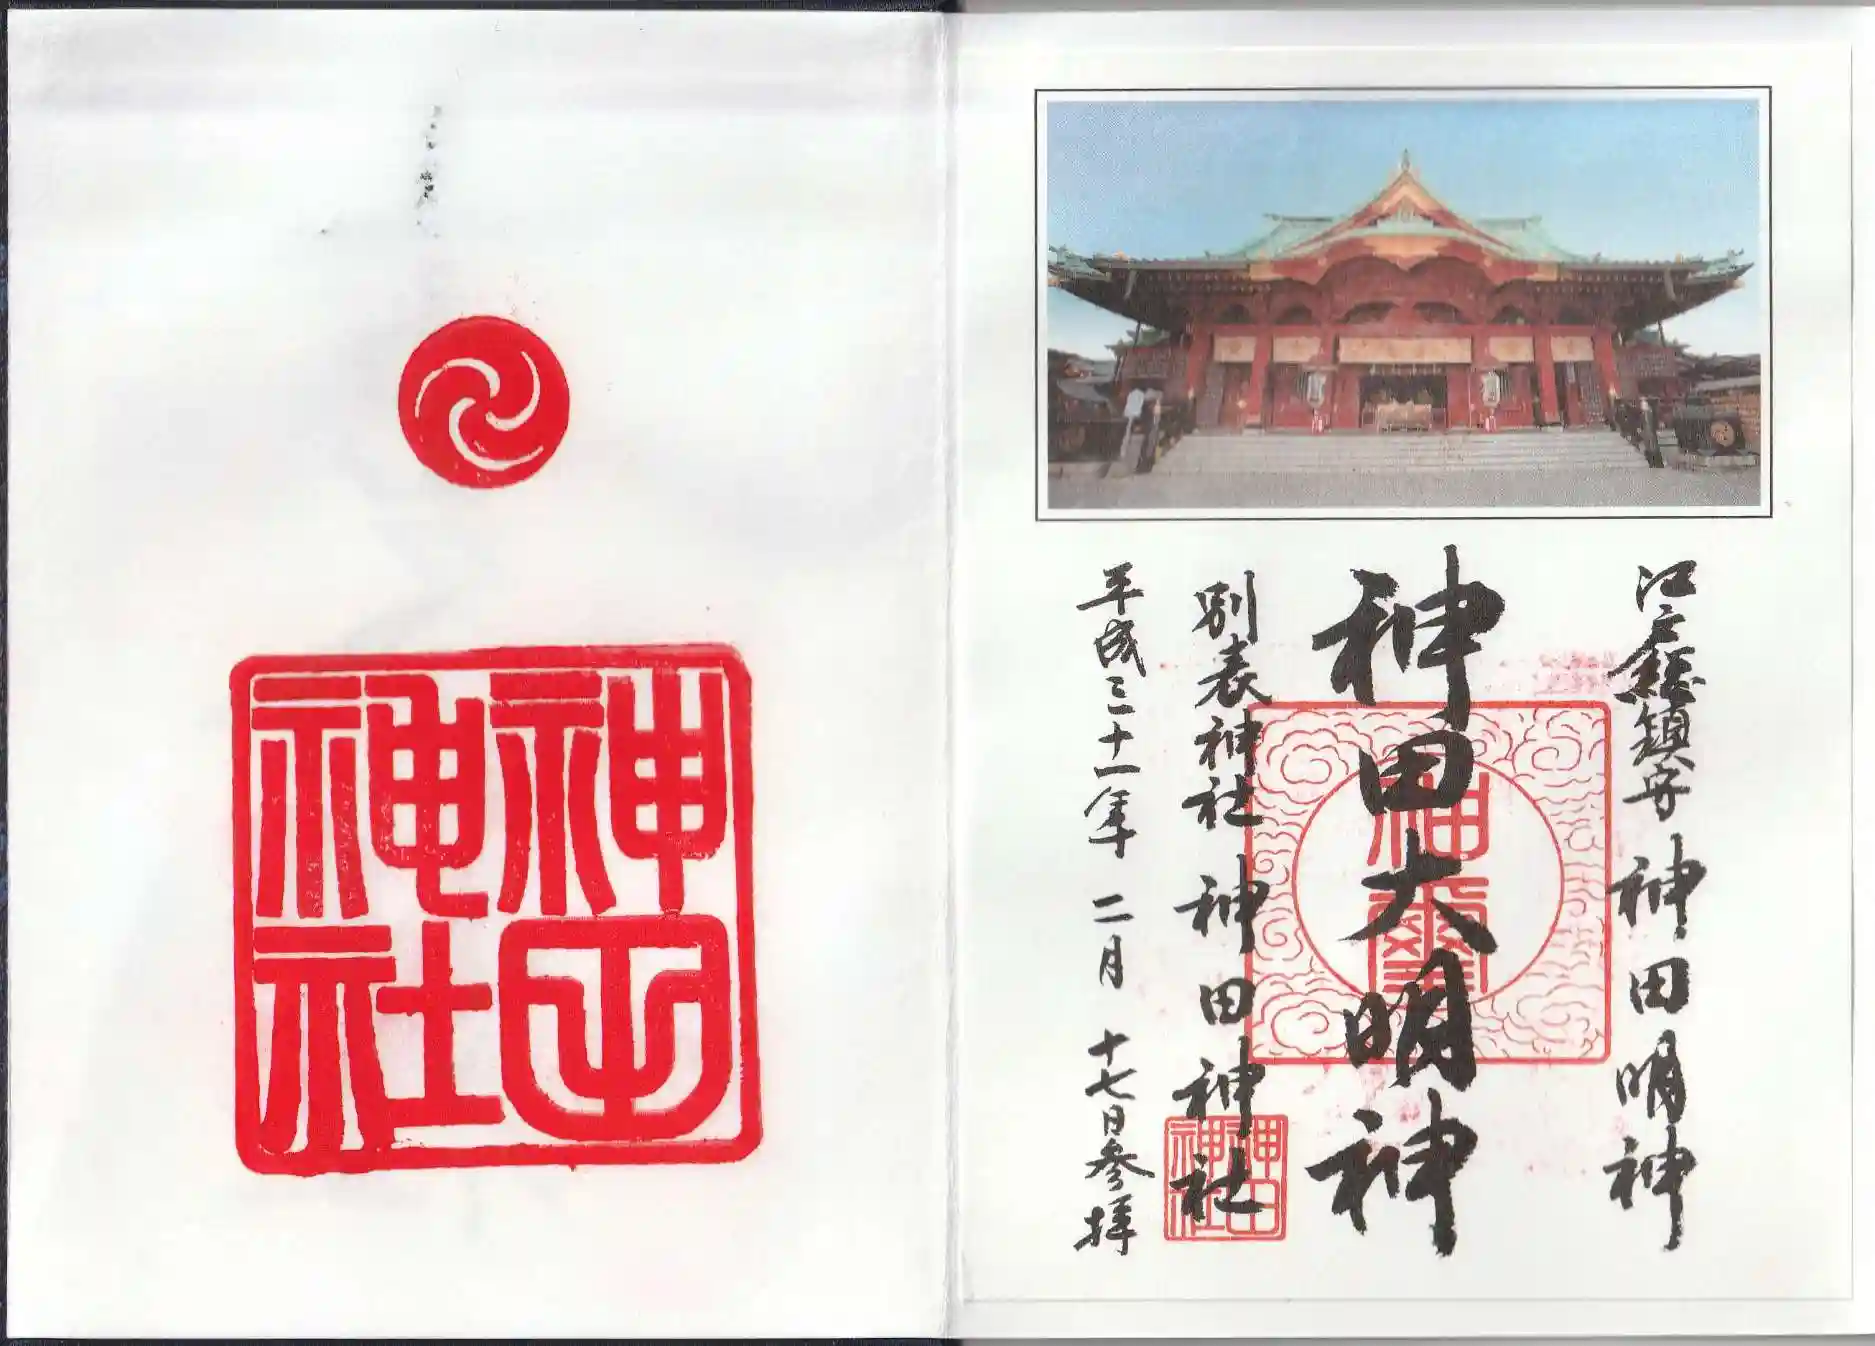 江戸総鎮守 神田明神
神田大明神
神璽
別表神社 神田神社
神田神社
平成三十一年 二月 十七日参拝
神田神社